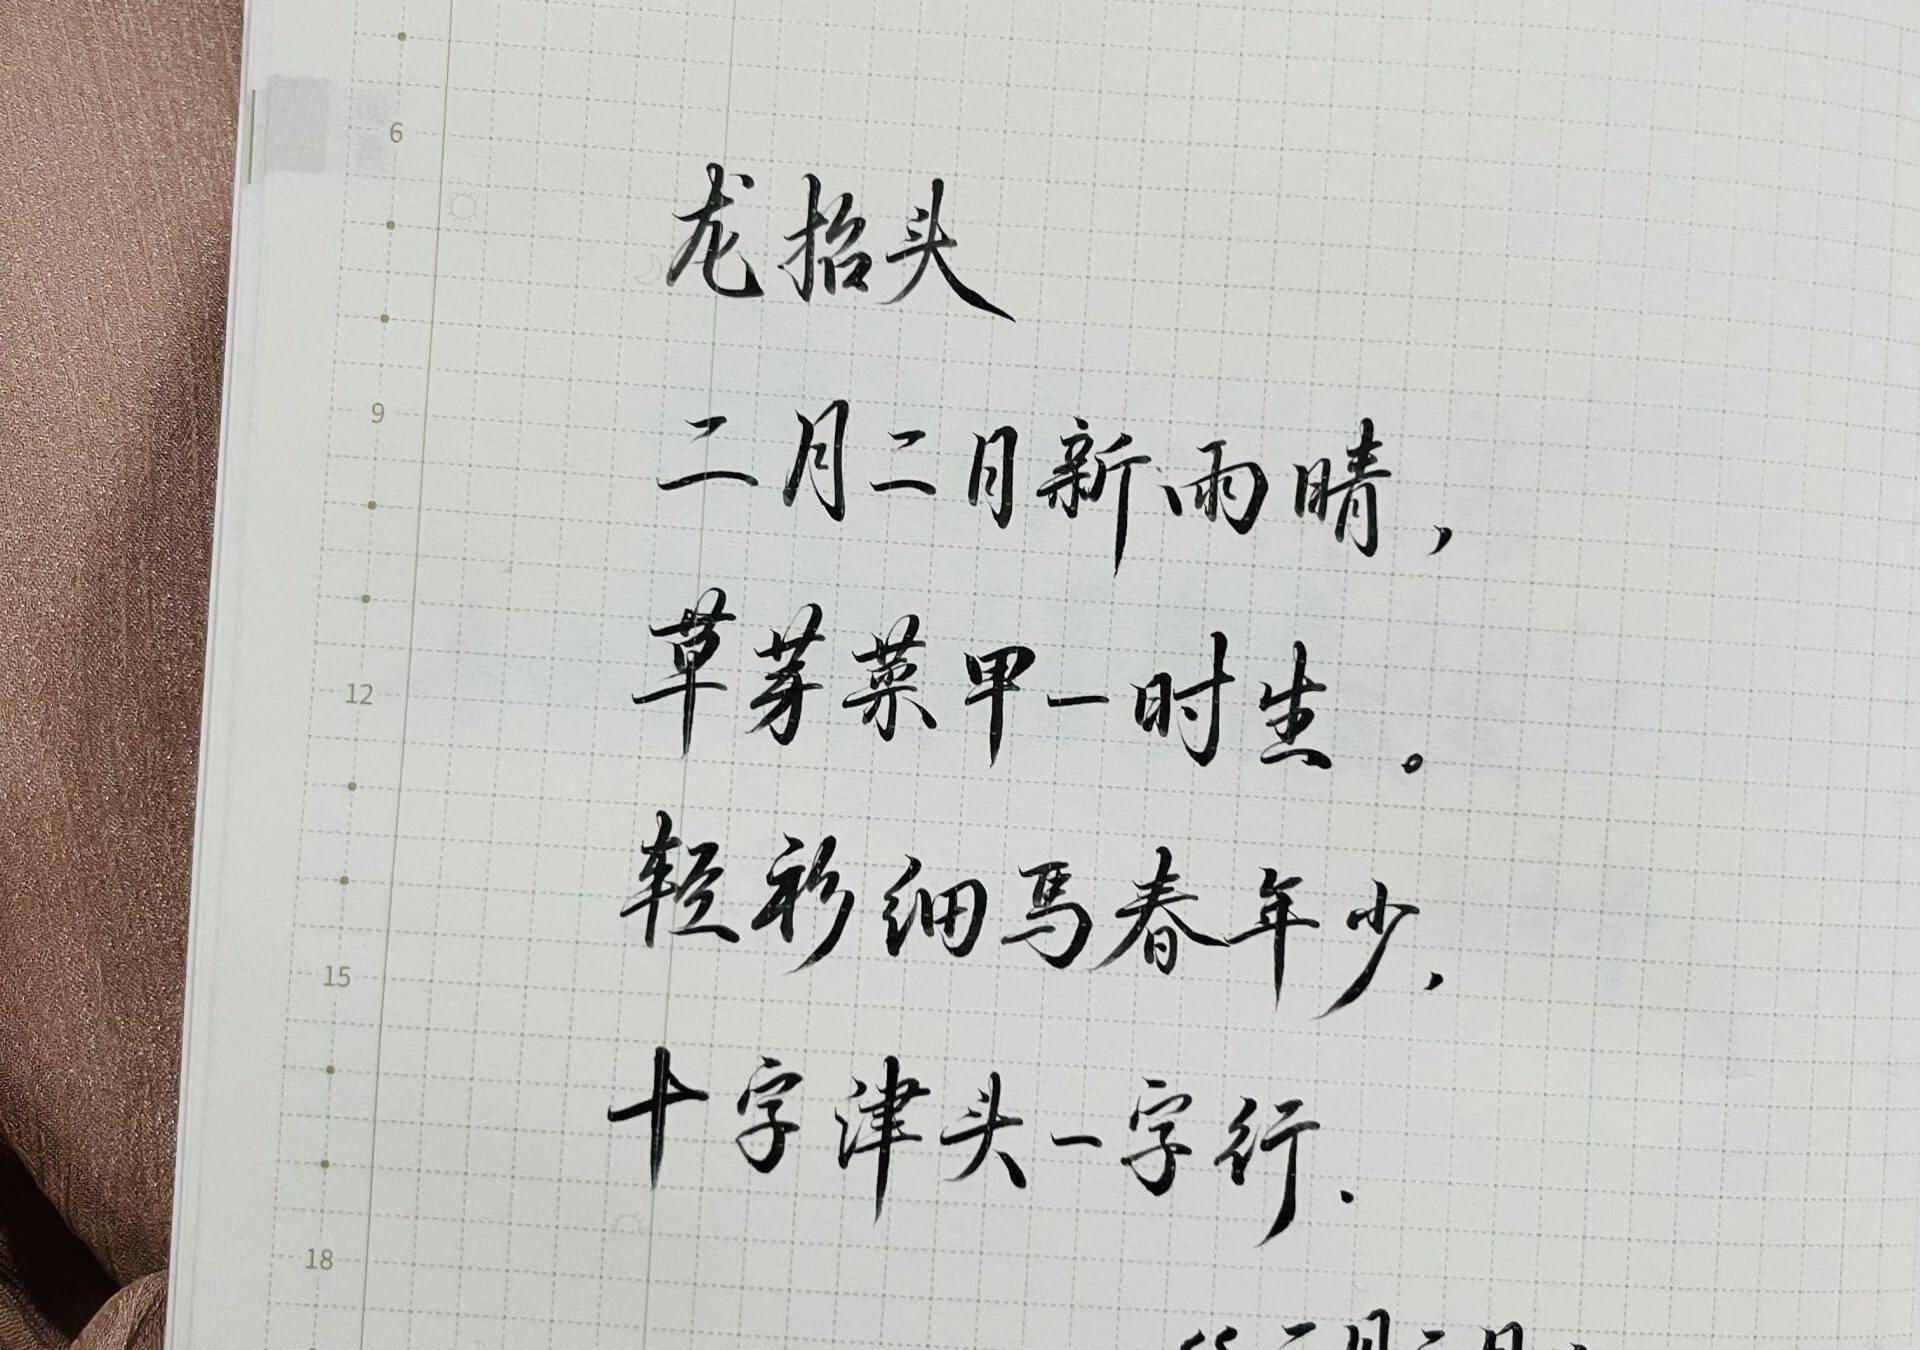 6
龙抬头
9
二月二日新雨晴，
草芽菜甲一时生。
12
轻衫细马春年少，
15
十字津头一字行.
18
二月二日